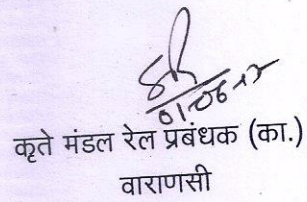 01-06-17
कृते मंडल रेल प्रबंधक (का.)
वाराणसी